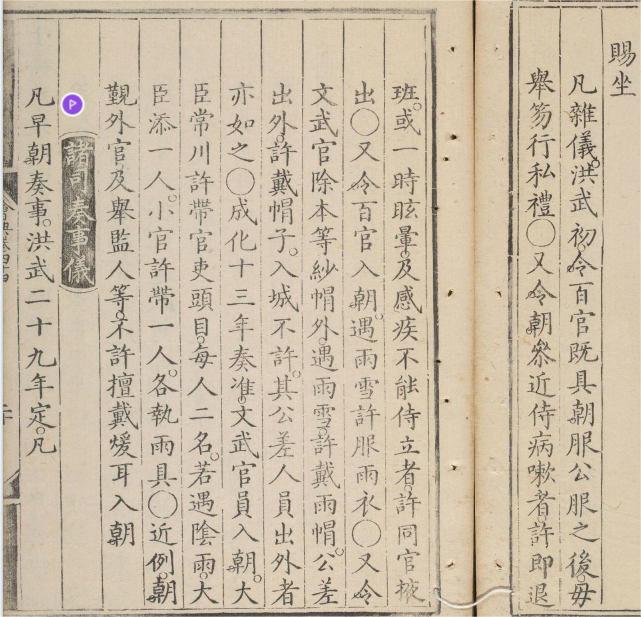 賜坐
凡雜儀。洪武初。令百官既具朝服公服之後。毋
舉笏行私禮〇又令朝叅近侍病嗽者。許即退
班。或一時眩暈。及感疾不能侍立者。許同官掖
出〇又令百官入朝。遇雨雪許服雨衣〇又令
文武官除本等紗帽外。遇雨雪。許戴雨帽。公差
出外。許戴帽子。入城不許。其公差人員出外者
亦如之〇成化十三年奏准。文武官員入朝。大
臣常川許帶官吏頭目。每人二名。若遇陰雨。大
臣添一人。小官許帶一人。各執雨具〇近例。朝
覲外官及舉監人等。不許擅戴煖耳入朝
諸司奏事儀
凡早朝奏事。洪武二十九年定。凡